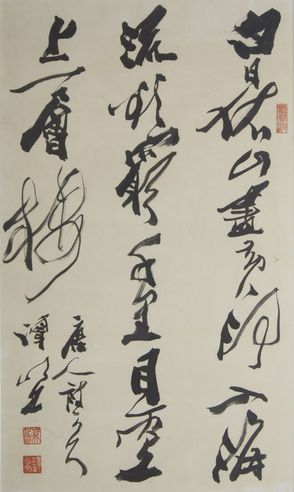 白日依山盡黃河入海
流欲窮千里目更
上一層樓
唐人詩